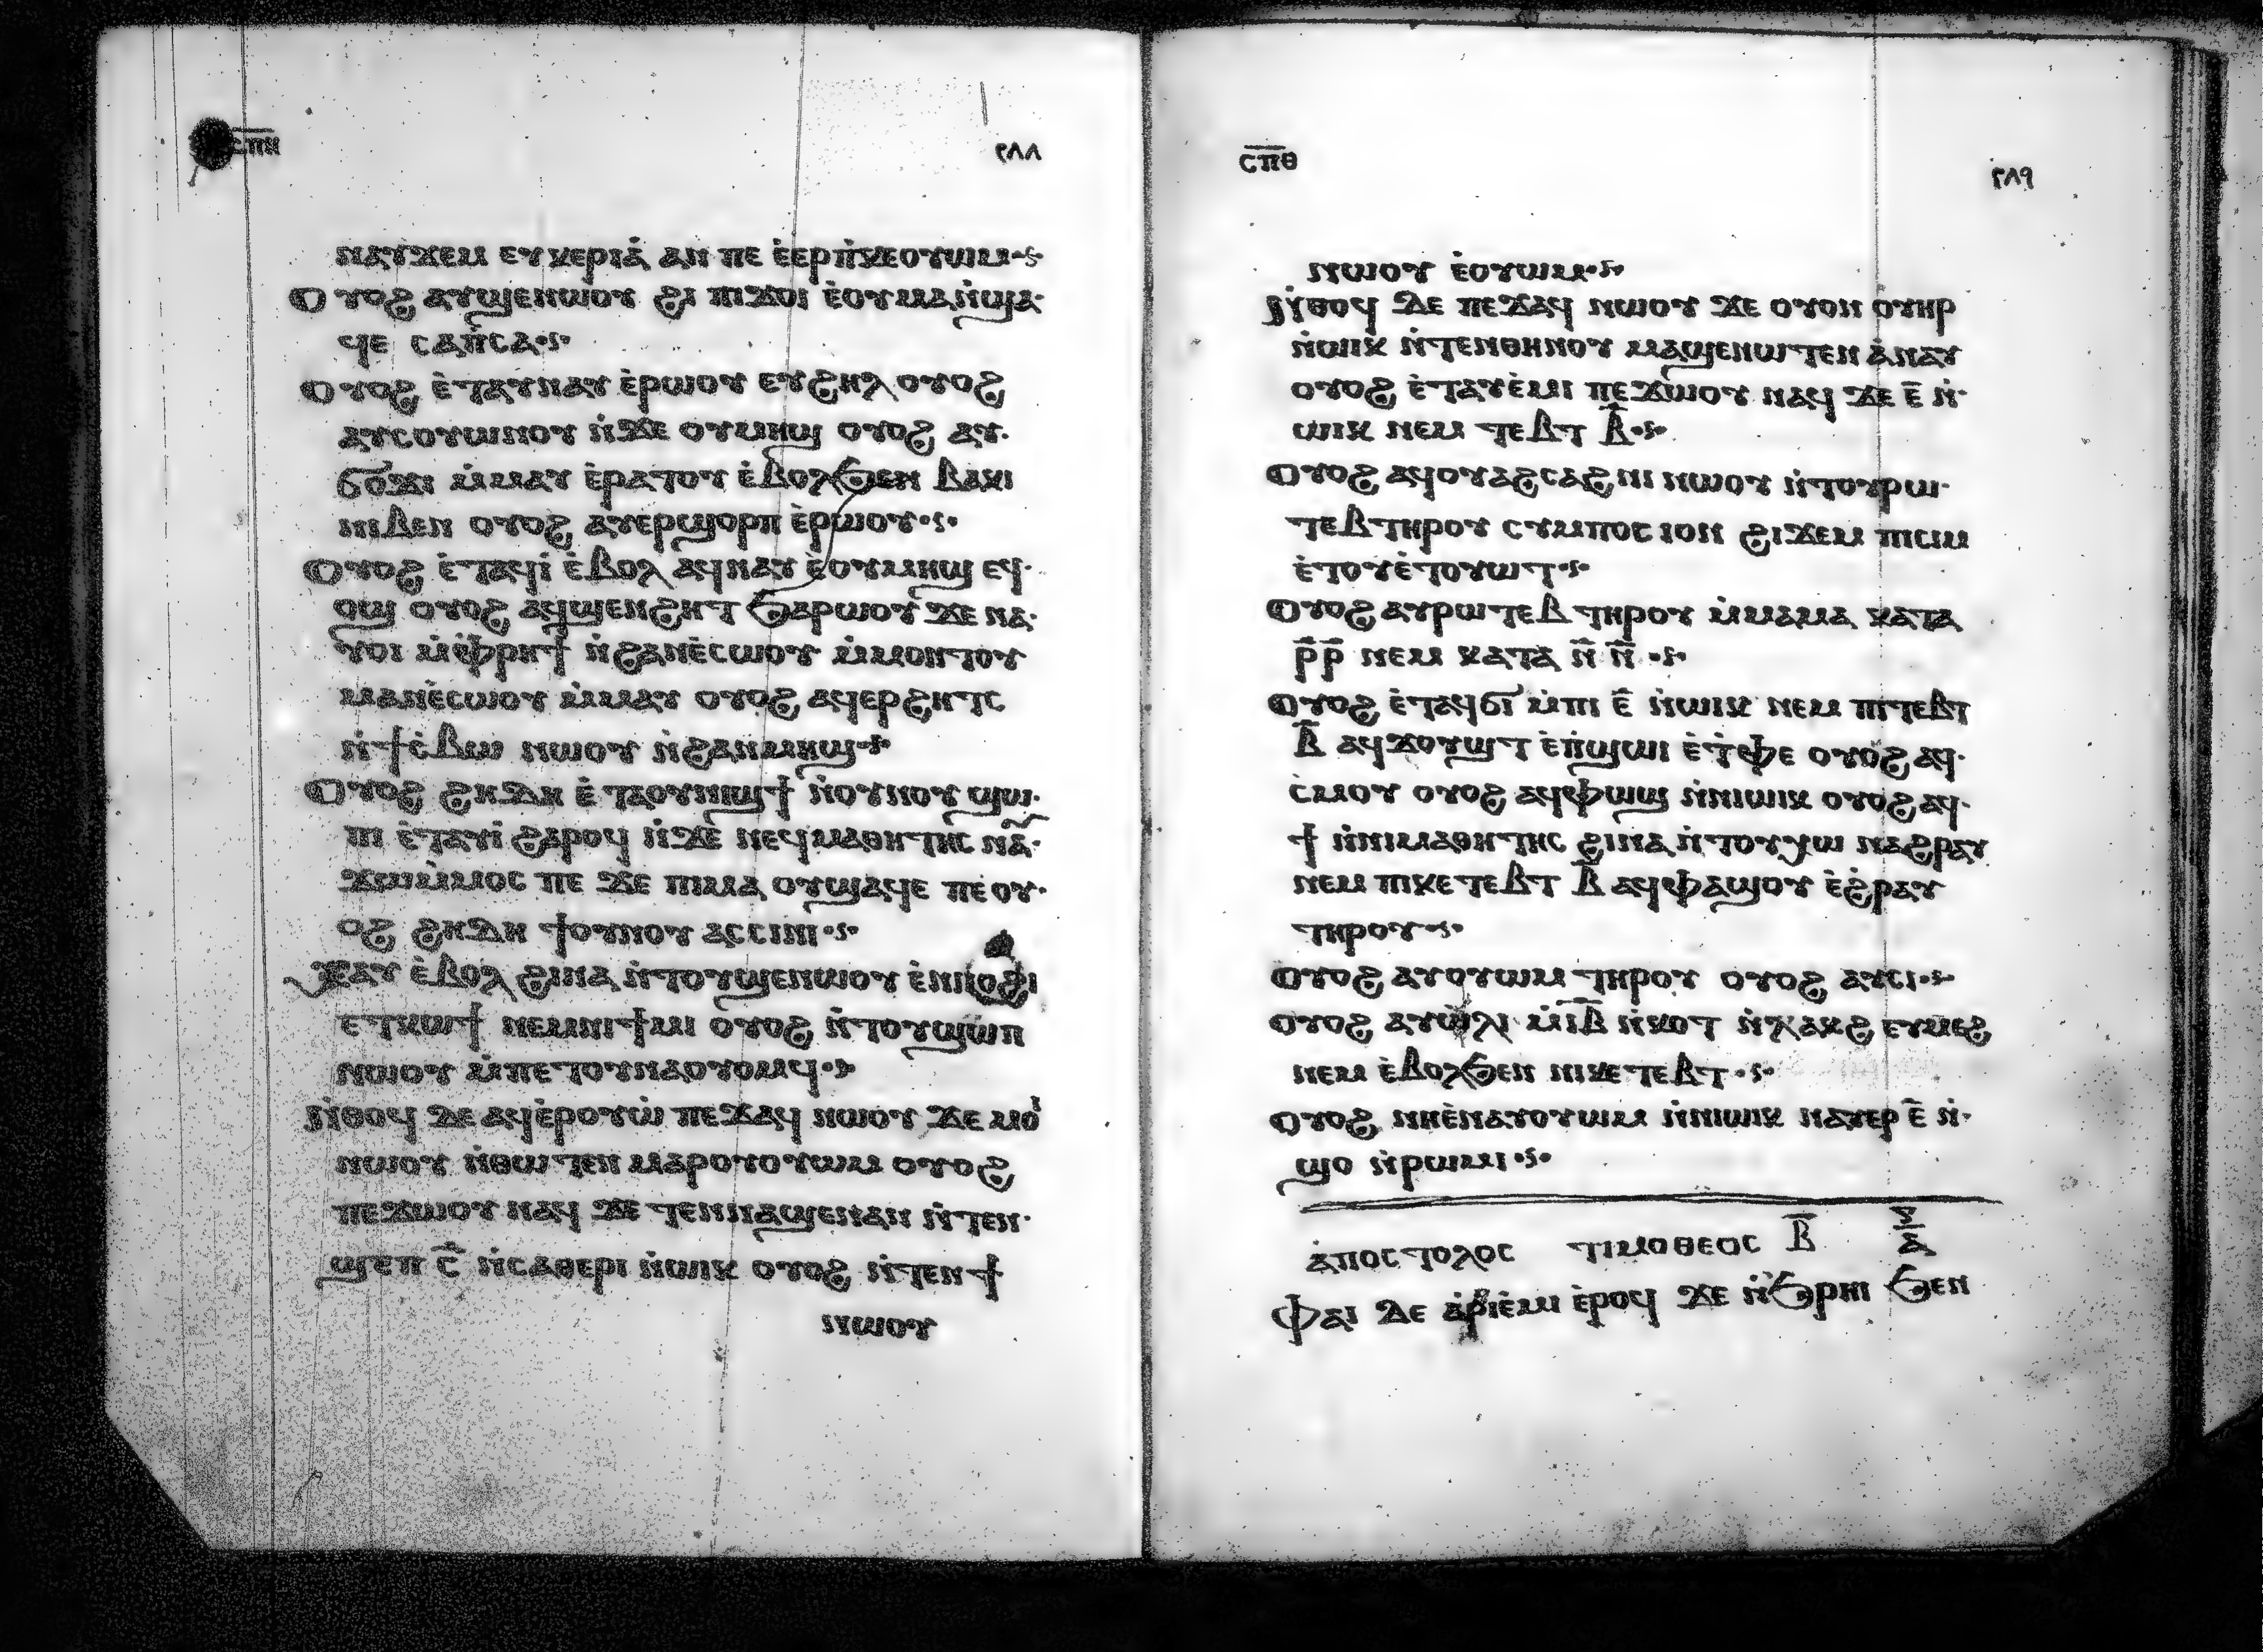 ⲥⲡⲏ ٢٨٨
ⲛⲁⲩϫⲉⲙ ⲉⲩⲕⲉⲣⲓⲁ̀ ⲁⲛ ⲡⲉ ⲉ̀ⲉⲣⲡ̀ⲕⲉⲟⲩⲱⲙ
Ⲟⲩⲟϩ ⲁⲩϣⲉⲛⲱⲟⲩ ϩⲓ ⲡⲓϫⲟⲓ ⲉ̀ⲟⲩⲙⲁⲛ̀ϣⲁ
ϥⲉ ⲥⲁⲡ̀ⲥⲁ
Ⲟⲩⲟϩ ⲉ̀ⲧⲁⲩⲛⲁⲩ ⲉ̀ⲣⲱⲟⲩ ⲉⲩϩⲏⲗ ⲟⲩⲟϩ
ⲁⲩⲥⲟⲩⲱⲛⲟⲩ ⲛ̀ϫⲉ ⲟⲩⲙⲏϣ ⲟⲩⲟϩ ⲁⲩ
ϭⲟϫⲓ ⲙ̀ⲙⲁⲩ ⲉ̀ⲣⲁⲧⲟⲩ ⲉ̀ⲃⲟⲗϧⲉⲛ ⲃⲁⲕⲓ
ⲛⲓⲃⲉⲛ ⲟⲩⲟϩ ⲁⲩⲉⲣϣⲟⲣⲡ ⲉ̀ⲣⲱⲟⲩ
Ⲟⲩⲟϩ ⲉ̀ⲧⲁϥⲓ̀ ⲉ̀ⲃⲟⲗ ⲁϥⲛⲁⲩ ⲉ̀ⲟⲩⲙⲏϣ ⲉϥ
ⲟϣ ⲟⲩⲟϩ ⲁϥϣⲉⲛϩⲏⲧ ϧⲁⲣⲱⲟⲩ ϫⲉ ⲛⲁ
ⲩⲟⲓ ⲙ̀ⲫ̀ⲣⲏϯ ⲛ̀ϩⲁⲛⲉ̀ⲥⲱⲟⲩ ⲙ̀ⲙⲟⲛⲧⲟⲩ
ⲙⲁⲛⲉ̀ⲥⲱⲟⲩ ⲙ̀ⲙⲁⲩ ⲟⲩⲟϩ ⲁϥⲉⲣϩⲏⲧⲥ
ⲛ̀ϯⲥ̀ⲃⲱ ⲛⲱⲟⲩ ⲛ̀ϩⲁⲛⲙⲏϣ
Ⲟⲩⲟϩ ϩⲏⲇⲏ ⲉ̀ⲧⲁⲟⲩⲛⲓϣϯ ⲛ̀ⲟⲩⲛⲟⲩ ϣⲱ
ⲡⲓ ⲉ̀ⲧⲁⲩⲓ̀ ϩⲁⲣⲟϥ ⲛ̀ϫⲉ ⲛⲉϥⲙⲁⲑⲏⲧⲏⲥ ⲛⲁⲩ
ϫⲱⲙ̀ⲙⲟⲥ ⲡⲉ ϫⲉ ⲡⲓⲙⲁ ⲟⲩϣⲁϥⲉ ⲡⲉ ⲟⲩ
ⲟϩ ϩⲏⲇⲏ ϯⲟⲩⲛⲟⲩ ⲁⲥⲥⲓⲛⲓ
Ⲭⲁⲩ ⲉ̀ⲃⲟⲗ ϩⲓⲛⲁ ⲛ̀ⲧⲟⲩϣⲉⲛⲱⲟⲩ ⲉ̀ⲛⲓⲟϩⲓ
ⲉⲧⲕⲱϯ ⲛⲉⲙⲛⲓϯⲙⲓ ⲟⲩⲟϩ ⲛ̀ⲧⲟⲩϣⲱⲡ
ⲛⲱⲟⲩ ⲙ̀ⲡⲉⲧⲟⲩⲛⲁⲟⲩⲟⲙϥ
Ⲛ̀ⲑⲟϥ ⲇⲉ ⲁϥⲉ̀ⲣⲟⲩⲱ̀ ⲡⲉϫⲁϥ ⲛⲱⲟⲩ ϫⲉ ⲙⲟⲓ
ⲛⲱⲟⲩ ⲛ̀ⲑⲱⲧⲉⲛ ⲙⲁⲣⲟⲩⲟⲩⲱⲙ ⲟⲩⲟϩ
ⲡⲉϫⲱⲟⲩ ⲛⲁϥ ϫⲉ ⲧⲉⲛⲛⲁϣⲉⲛⲁⲛ ⲛ̀ⲧⲉⲛ
ϣⲉⲡ ⲥ̅ ⲛ̀ⲥⲁⲑⲉⲣⲓ ⲛ̀ⲱⲓⲕ ⲟⲩⲟϩ ⲛ̀ⲧⲉⲛϯ
ⲛⲱⲟⲩ
ⲥⲡⲑ ٢٨٩
ⲛⲱⲟⲩ ⲉ̀ⲟⲩⲱⲙ
Ⲛ̀ⲑⲟϥ ⲇⲉ ⲡⲉϫⲁϥ ⲛⲱⲟⲩ ϫⲉ ⲟⲩⲟⲛ ⲟⲩⲏⲣ
ⲛ̀ⲱⲓⲕ ⲛ̀ⲧⲉⲛⲑⲏⲛⲟⲩ ⲙⲁϣⲉⲛⲱⲧⲉⲛ ⲁ̀ⲛⲁⲩ
ⲟⲩⲟϩ ⲉ̀ⲧⲁⲩⲉ̀ⲙⲓ ⲡⲉϫⲱⲟⲩ ⲛⲁϥ ϫⲉ ⲉ̅ ⲛ̀
ⲱⲓⲕ ⲛⲉⲙ ⲧⲉⲃⲧ ⲃ̅
Ⲟⲩⲟϩ ⲁϥⲟⲩⲁϩⲥⲁϩⲛⲓ ⲛⲱⲟⲩ ⲛ̀ⲧⲟⲩⲣⲱ
ⲧⲉⲃ ⲧⲏⲣⲟⲩ ⲥⲩⲙⲡⲟⲥⲓⲟⲛ ϩⲓϫⲉⲙ ⲡⲓⲥⲓⲙ
ⲉ̀ⲧⲟⲩⲉ̀ⲧⲟⲩⲱⲧ
Ⲟⲩⲟϩ ⲁⲩⲣⲱⲧⲉⲃ ⲧⲏⲣⲟⲩ ⲙ̀ⲙⲁⲙⲁ ⲕⲁⲧⲁ
ⲣ̅ⲣ̅ ⲛⲉⲙ ⲕⲁⲧⲁ ⲛ̅ ⲛ̅
Ⲟⲩⲟϩ ⲉ̀ⲧⲁϥϭⲓ ⲙ̀ⲡⲓ ⲉ̅ ⲛ̀ⲱⲓⲕ ⲛⲉⲙ ⲡⲓⲧⲉⲃⲧ
ⲃ̅ ⲁϥϫⲟⲩϣⲧ ⲉ̀ⲡ̀ϣⲱⲓ ⲉ̀ⲧ̀ⲫⲉ ⲟⲩⲟϩ ⲁϥ
ⲥ̀ⲙⲟⲩ ⲟⲩⲟϩ ⲁϥⲫⲱϣ ⲛ̀ⲛⲓⲱⲓⲕ ⲟⲩⲟϩ ⲁϥ
ϯ ⲛ̀ⲛⲓⲙⲁⲑⲏⲧⲏⲥ ϩⲓⲛⲁ ⲛ̀ⲧⲟⲩⲭⲱ ⲛⲁϩⲣⲁⲩ
ⲛⲉⲙ ⲡⲓⲕⲉⲧⲉⲃⲧ ⲃ̅ ⲁϥⲫⲁϣⲟⲩ ⲉ̀ϩ̀ⲣⲁⲩ
ⲧⲏⲣⲟⲩ
Ⲟⲩⲟϩ ⲁⲩⲟⲩⲱⲙ ⲧⲏⲣⲟⲩ ⲟⲩⲟϩ ⲁⲩⲥⲓ
Ⲟⲩⲟϩ ⲁⲩⲱ̀ⲗⲓ ⲙ̀ⲓ̅ⲃ̅ ⲛ̀ⲕⲟⲧ ⲛ̀ⲗⲁⲕϩ ⲉⲩⲙⲉϩ
ⲛⲉⲙ ⲉ̀ⲃⲟⲗϧⲉⲛ ⲛⲓⲕⲉⲧⲉⲃⲧ
Ⲟⲩⲟϩ ⲛⲏⲉ̀ⲛⲁⲩⲟⲩⲱⲙ ⲛ̀ⲛⲓⲱⲓⲕ ⲛⲁⲩⲉⲣ ⲉ̅ ⲛ̀
ϣⲟ ⲛ̀ⲣⲱⲙⲓ
ⲁ̀ⲡⲟⲥⲧⲟⲗⲟⲥ ⲧⲓⲙⲟⲑⲉⲟⲥ ⲃ̅ ⲅ̅ ⲁ̅
Ⲫⲁⲓ ⲇⲉ ⲁ̀ⲣⲓⲉ̀ⲙⲓ ⲉ̀ⲣⲟϥ ϫⲉ ⲛ̀ϧ̀ⲣⲏⲓ ϧⲉⲛ